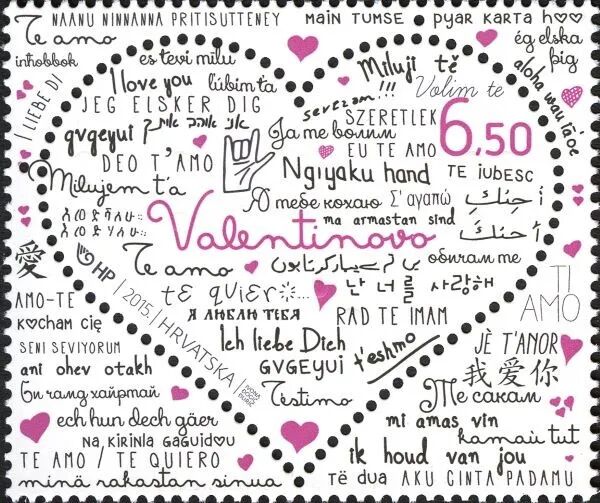 NAANU NINNANNA PRITISUTTENEY
MAIN TUMSE
PYAR KARTA H
Te amo
ég elska
þig
es tevi milu
Miluji tě
aloha wau ia 'oe
I LIEBE DI
I love you
ľúbim ťa
Volim te
JEG ELSKER DIG
SZERETLEK
6,50
gvgeyui
אני אוהב אותך
Ja те волим
DEO T'AMO
EU TE AMO
Milujem ťa
Ngiyaku hand
TE IUBESC
Я тебе кохаю
Σ' αγαπώ
أحبك
ma armastan sind
Valentinovo
أحبك
愛
HP | 2015. | HRVATSKA
Te amo
обичам те
TE QUIERO...
난 너를 사랑해
TI
AMO
AMO-TE
Я ЛЮБЛЮ ТЕБЯ
RAD TE IMAM
KOCHAM CIĘ
Ich liebe Dich
t'eshmo
JÈ T'ANOR
SENI SEVIYORUM
GVGEYUI
我爱你
ani ohev otakh
Би чамд хайртай
Testimo
Те сакам
ech hun dech gäer
mi amas vin
na kirinla gaguidou
hamaù tut
TE AMO / TE QUIERO
ik houd van jou
minä rakastan sinua
Të dua
AKU CINTA PADAMU